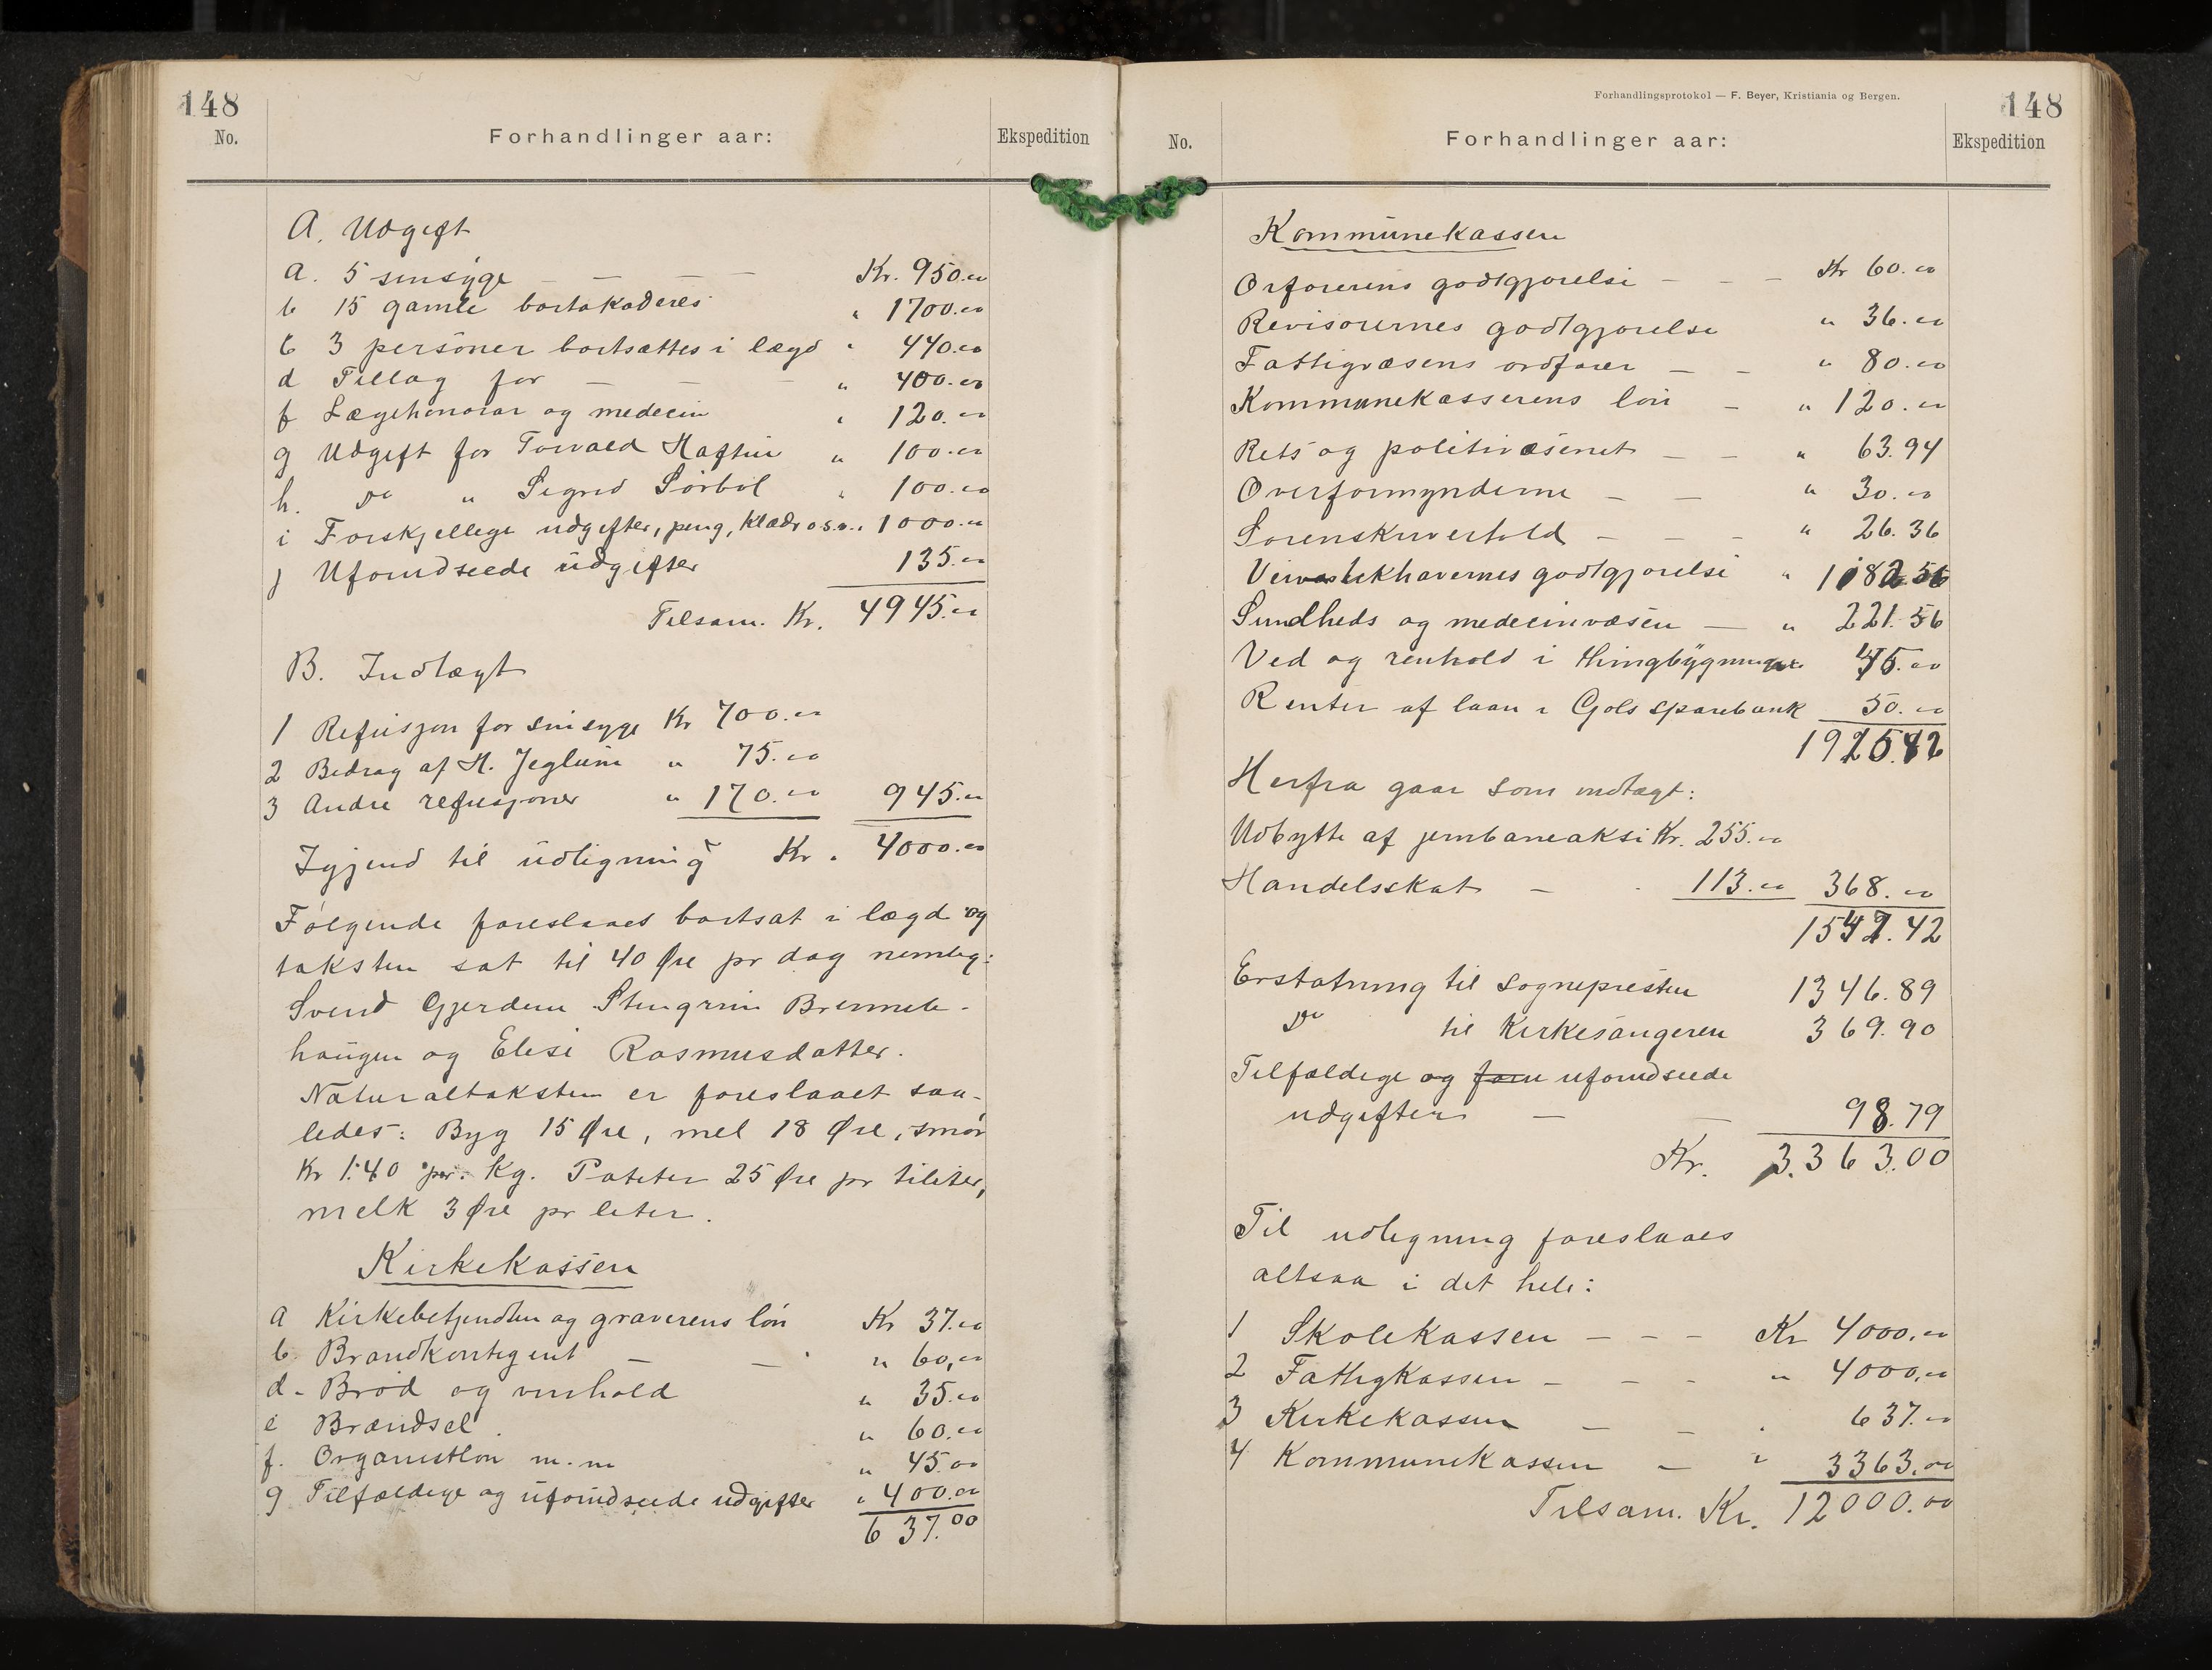 148
No.
Forhandlinger aar:
Ekspedition
A. Udgift
a. 5 sinsyge — — — Kr. 950.00
b 15 gamle bortakoderes " 1700.00
c 3 personer bortsættes i lægd " 440.00
d Tillæg for — — — " 400.00
f Lægehonorar og medecin " 120.00
g Udgift for Torvald Haftun " 100.00
h. Do " Sigrid Sørbøl " 100.00
i Forskjellige udgifter, peng, Klæder o.s.v. 1000.00
j Uforudseede udgifter 135.00
Tilsam. Kr. 4945.00
B. Indtægt
1 Refusjon for sinsyge Kr 700.00
2 Bidrag af H. Jeglum " 75.00
3 Andre refusjoner " 170.00 945.00
Igjend til udligning Kr. 4000.00
Følgende foreslaaes bortsat i lægd og
taksten sat til 40 Øre pr dag nemlig:
Svend Gjerdene Stengrim Brenneli-
haugen og Elisi Rasmusdatter.
Naturaltaksten er foreslaaet saa-
ledes: Byg 15 Øre, mel 18 Øre, smør
Kr 1.40 per. Kg. Poteter 25 Øre pr tiliter,
melk 3 Øre pr liter.
Kirkekassen
a Kirkebetjendten og graverens løn Kr 37.00
b. Brandkontigent — — " 60,00
d. Brød og vinhold " 35.00
e Brændsel. " 60.00
f. Organistløn m.m " 45.00
g Tilfældige og uforudseede udgifter " 400.00
637.00
Forhandlingsprotokol — F. Beyer, Kristiania og Bergen.
148
No.
Forhandlinger aar:
Ekspedition
Kommunekassen
Orførerens godtgjørelse — — — Kr 60.00
Revisorernes godtgjørelse " 36.00
Fattigvæsens ordfører — — " 80.00
Kommunekassererens løn — " 120.00
Rets og politivæsenet — — " 63.94
Overformynderne — — " 30.00
Sorenskriverhold — — — " 26.36
havernes godtgjørelse "
Sundheds og medecinvæsen — " 221.56
Ved og renhold i thingbygningen 45.00
Renter af laan i Gols sparebank 50.00
Herfra gaar som indtægt:
Udbytte af jernbaneaksi Kr. 255.00
Handelsskat — 113.00 368.00
Erstatning til sognepresten 1346.89
Do til Kirkesangeren 369.90
Tilfældige og uforudseede
udgifter — — 98.79
Kr. 3.363.00
Til udligning foreslaaes
altsaa i det hele:
1 Skolekassen — — — Kr 4000.00
2 Fattigkassen — — - " 4000,00
3 Kirkekassen — — . 637.00
4 Kommunekassen — " 3363.00
Tilsam. Kr. 12000.00